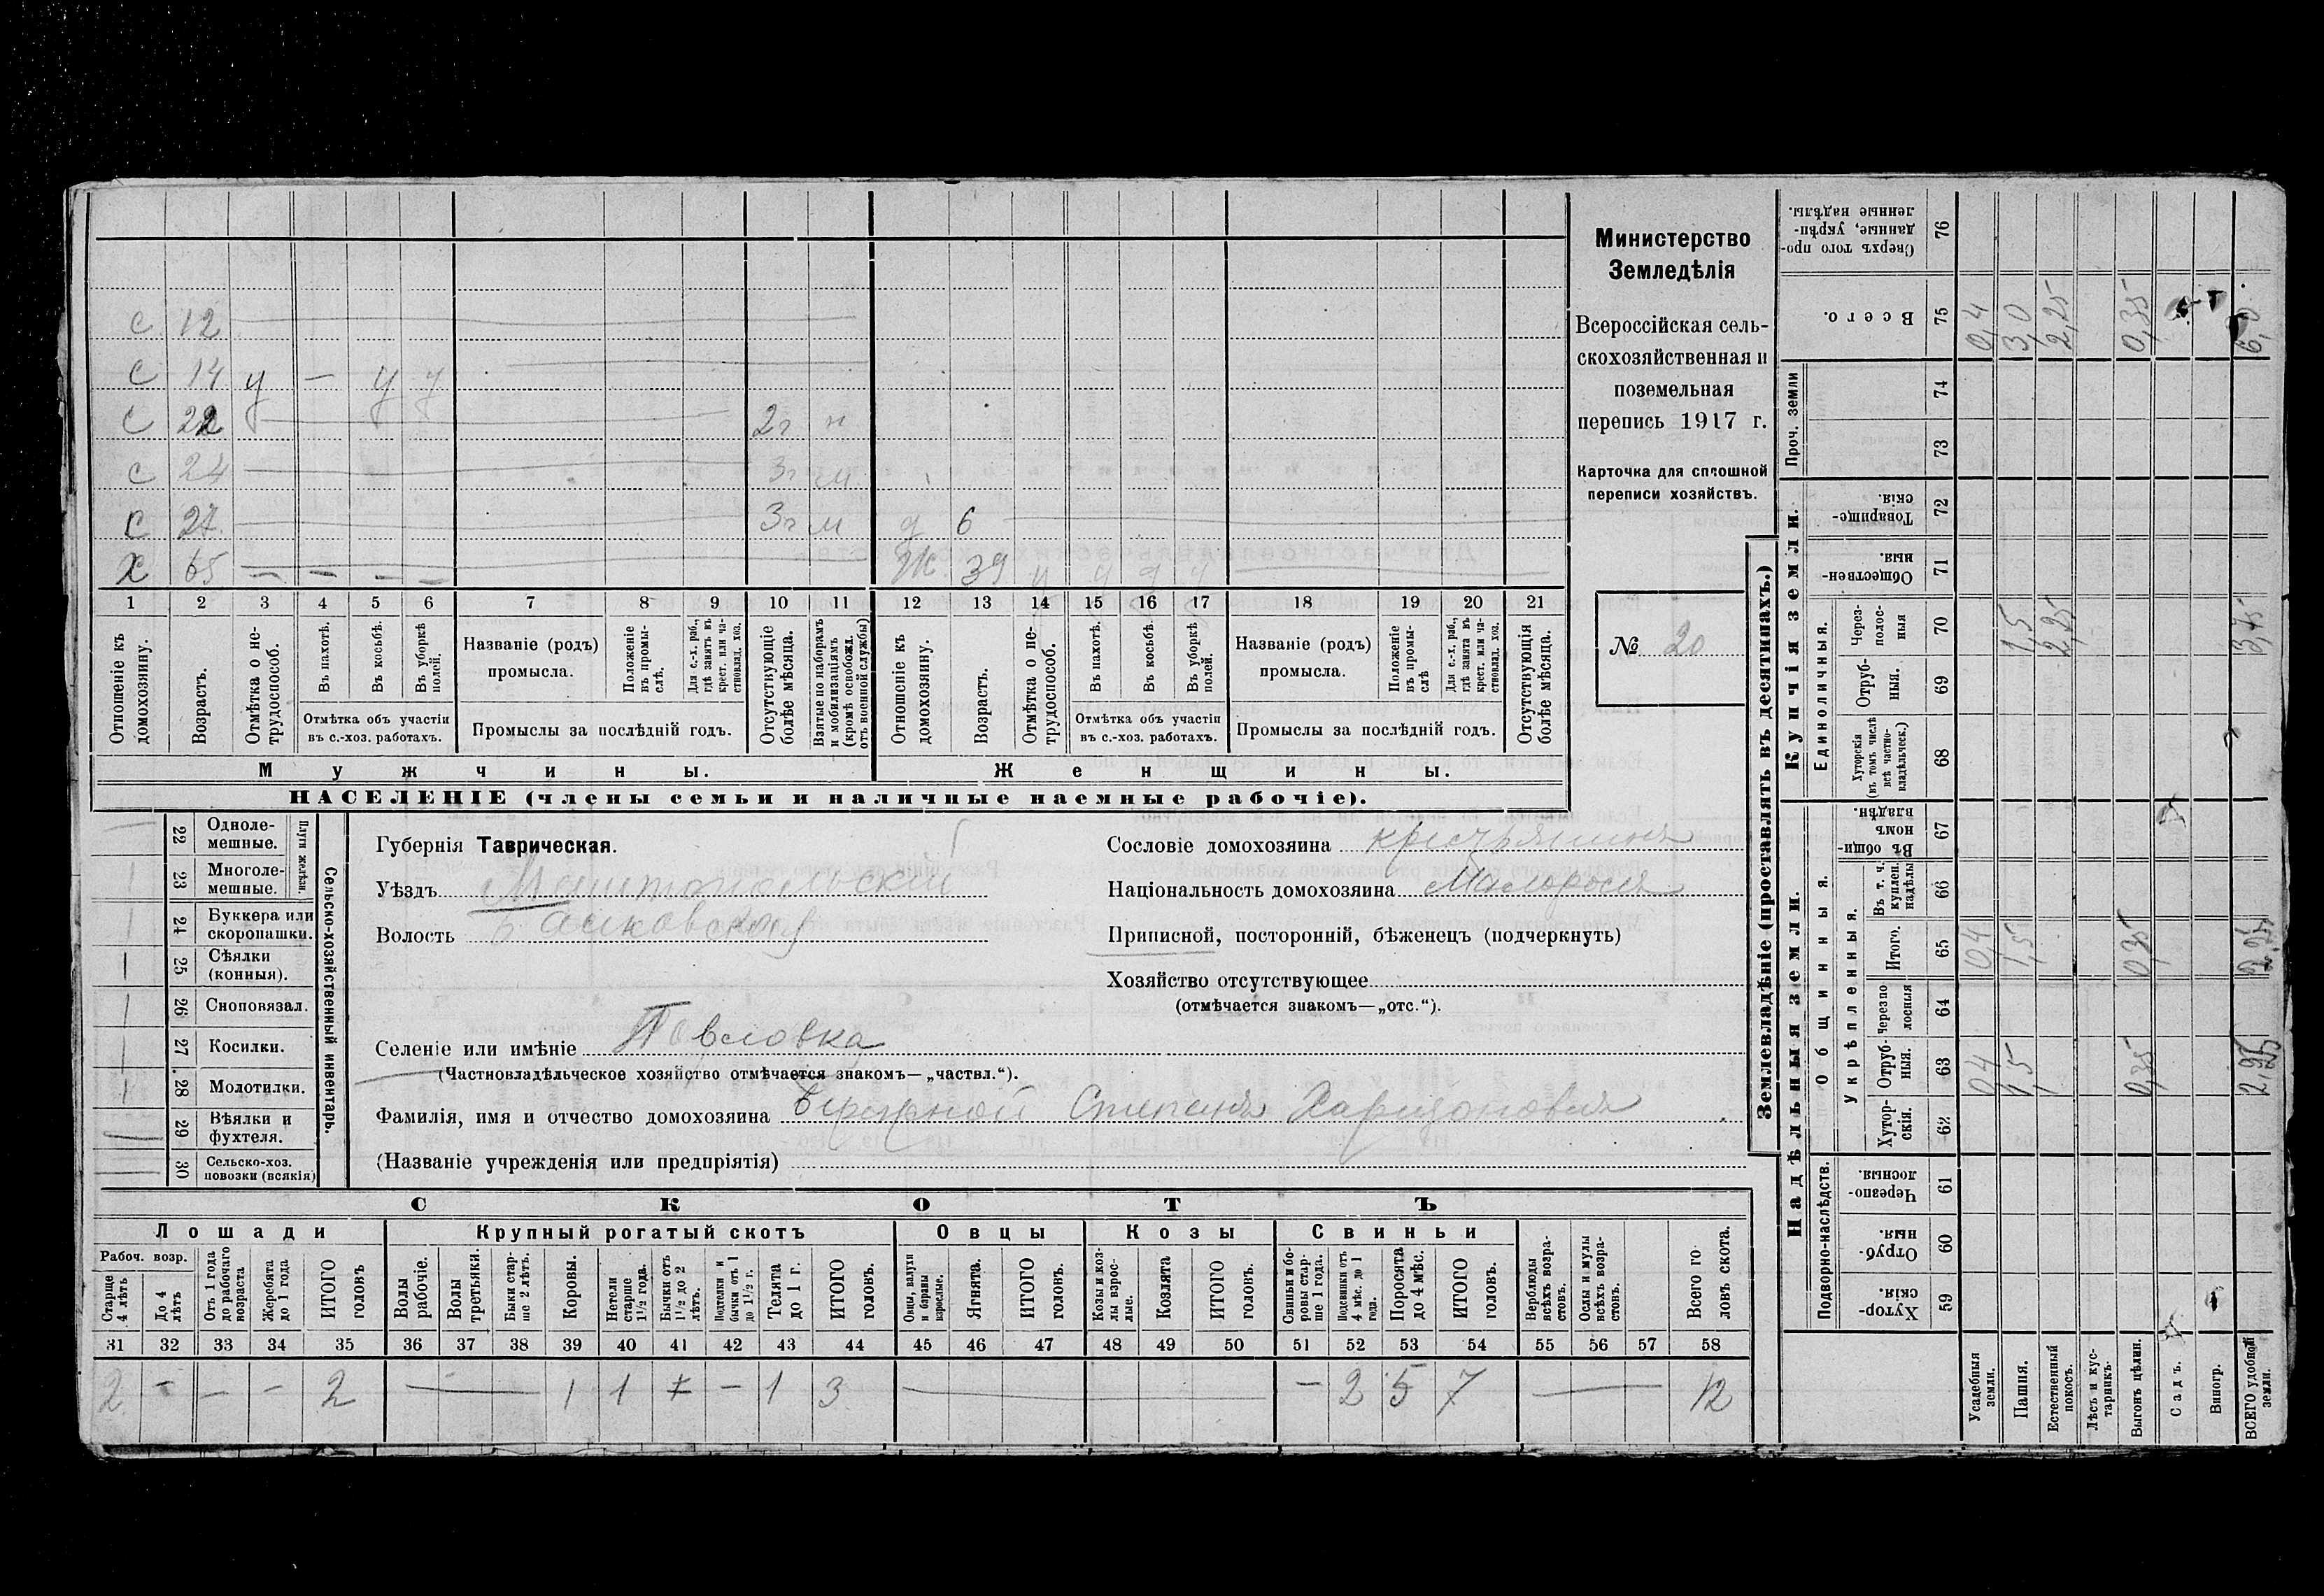 Министерство
Земледѣлія
Всероссійская сель-
скохозяйственная и
поземельная
перепись 1917 г.
Карточка для сплошной
переписи хозяйствъ.
№ 20
с 12
с 14 у — у у
с 22 2г н
с 24 3г м
с 27 3г м д 6
х 65 — — — — ж 39 у у у у
1 2 3 4 5 6 7 8 9 10 11 12 13 14 15 16 17 18 19 20 21
Отношеніе къ домохозяину.
Возрастъ.
Отмѣтка о не-трудоспособ.
Въ пахотѣ.
Въ косьбѣ.
Въ уборкѣ полей.
Отмѣтка объ участіи
въ с.-хоз. работахъ.
Названіе (родъ)
промысла.
Положеніе въ промы-слѣ.
Для с.-х. раб., гдѣ занятъ въ крест. или ча-стновлад. хоз.
Промыслы за послѣдній годъ.
Отсутствующіе болѣе мѣсяца.
Взятые по наборамъ и мобилизаціямъ (кромѣ освобожд. отъ военной службы)
Отношеніе къ домохозяину.
Возрастъ.
Отмѣтка о не-трудоспособ.
Въ пахотѣ.
Въ косьбѣ.
Въ уборкѣ полей.
Отмѣтка объ участіи
въ с.-хоз. работахъ.
Названіе (родъ)
промысла.
Положеніе въ промы-слѣ
Для с.-х. раб., гдѣ занята въ крест. или ча-стновлад. хоз.
Промыслы за послѣдній годъ.
Отсутствующія болѣе мѣсяца.
Мужчины. Женщины.
НАСЕЛЕНІЕ (члены семьи и наличные наемные рабочіе).
Сельско-хозяйственный инвентарь.
Плуги желѣзн.
— 22 Одноле-мешные.
1 23 Многоле-мешные.
1 24 Буккера или скоропашки.
1 25 Сѣялки (конныя).
1 26 Сноповязал.
1 27 Косилки.
1 28 Молотилки.
29 Вѣялки и фухтеля.
30 Сельско-хоз. повозки (всякія)
Губернія Таврическая.
Уѣздъ Мелитопольскій
Волость
Селеніе или имѣніе Павловка
(Частновладѣльческое хозяйство отмѣчается знакомъ—„частвл.“).
Фамилія, имя и отчество домохозяина Степанъ Харитоновъ
(Названіе учрежденія или предпріятія)
Сословіе домохозяина крестьянинъ
Національность домохозяина Малороссъ
Приписной, посторонній, бѣженецъ (подчеркнуть)
Хозяйство отсутствующее
(отмѣчается знакомъ—„отс.“).
СКОТЪ
Лошади Крупный рогатый скотъ Овцы Козы Свиньи
Рабоч. возр.
Старше 4 лѣтъ
До 4 лѣтъ
Отъ 1 года до рабочаго возраста
Жеребята до 1 года
ИТОГО головъ
Волы рабочіе.
Волы третьяки.
Быки стар-ше 2 лѣтъ.
Коровы.
Нетели старше 1½ года.
Бычки отъ 1½ до 2 лѣтъ.
бычки отъ 1 до 1½ г.
Телята до 1 г.
ИТОГО головъ.
Овцы, валухи и бараны взрослые.
Ягнята.
ИТОГО головъ.
Козы и коз-лы взрос-лые.
Козлята
ИТОГО головъ.
Свиньи и бо-ровы стар-ше 1 года.
Подсвинки отъ 4 мѣс. до 1 года.
Поросята до 4 мѣс.
ИТОГО головъ.
Верблюды всѣхъ возра-стовъ.
Ослы и мулы всѣхъ возра-стовъ.
Всего го-ловъ скота.
31 32 33 34 35 36 37 38 39 40 41 42 43 44 45 46 47 48 49 50 51 52 53 54 55 56 57 58
2 — — — 2 — 1 1 — 1 3 — — 2 5 7 — 12
Землевладѣніе (проставлять въ десятинахъ.)
Надѣльныя земли. Купчія земли.
Подворно-наслѣдств.
Общинныя.
Укрѣпленныя.
Единоличныя.
Проч. земли
Хутор-скія. 59
Отруб-ныя. 60
Черезпо-лосныя 61
Хутор-скія. 62
Отруб-ныя. 63
Черезпо-лосныя 64
Итого. 65
Въ т. ч. куплен. надѣлы 66
Въ общи-номъ владѣн. 67
Хуторскія (въ томъ числѣ всѣ частно-владѣльческ.) 68
Отруб-ныя. 69
Через-полос-ныя 70
Обществен-ныя. 71
Товарище-скія. 72
73
74
Всего. 75
Сверхъ того про-данные, укрѣп-ленные надѣлы. 76
Усадебныя земли. 0,4 0,4 0,4
Пашня. 1,5 1,5 1,5 3,0
Естественный покосъ. 2,25 2,25
Лѣсъ и кус-тарникъ.
Выгонъ цѣлин. 0,35 0,35 0,35
Садъ.
Виногр.
ВСЕГО удобной земли. 2,25 2,25 3,75 6,0